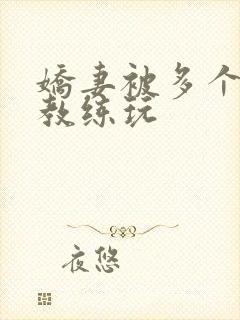 嬌妻被多个
教练玩
夜悠